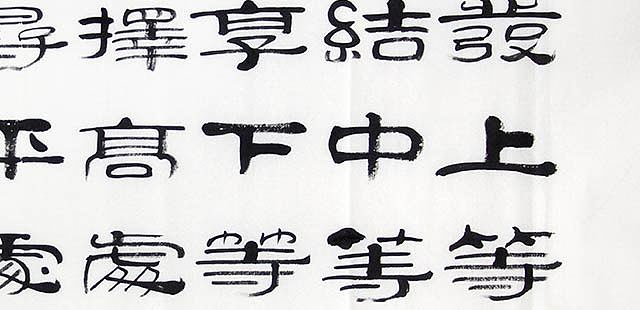 發上等
結中等
享下等
擇高處
尋平處